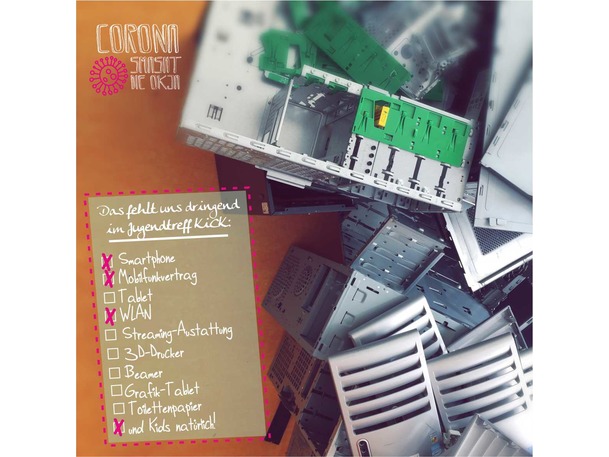 CORONA
SMASHT
NE OKJA
Das fehlt uns dringend
im Jugendtreff KiCK:
Smartphone
Mobilfunkvertrag
Tablet
WLAN
Streaming-Austattung
3D-Drucker
Beamer
Grafik-Tablet
Toilettenpapier
und Kids natürlich!